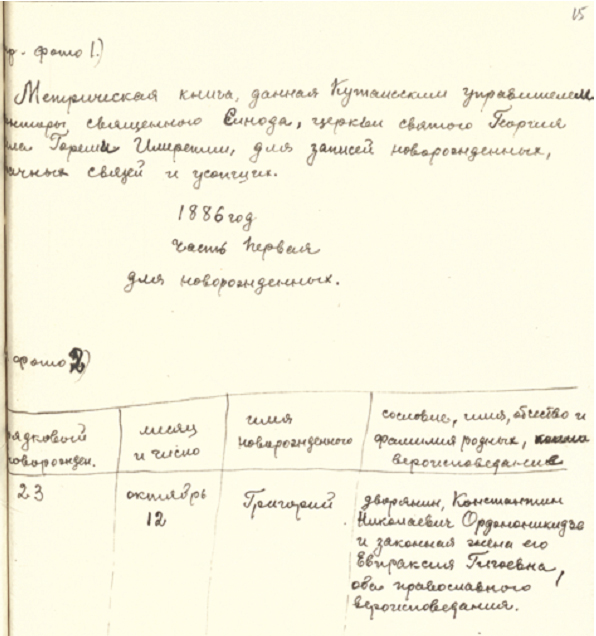 15
фото 1.)
Метрическая книга, данная Кутаисским управителем
священного Синода, церкви святого Георгия
Горешы Имеретии, для записей новорожденных,
связей и усопших.
1886 год
часть первая
для новорожденных.
фото 2)
месяц
и число
имя
новорожденного
сословие, имя, отчество и
фамилия родных,
вероисповедание
23
октябрь
12
Григорий
дворянин, Константин
Николаевич Орджоникидзе
и законная жена его
Евпраксия Гигоевна,
оба православного
вероисповедания.